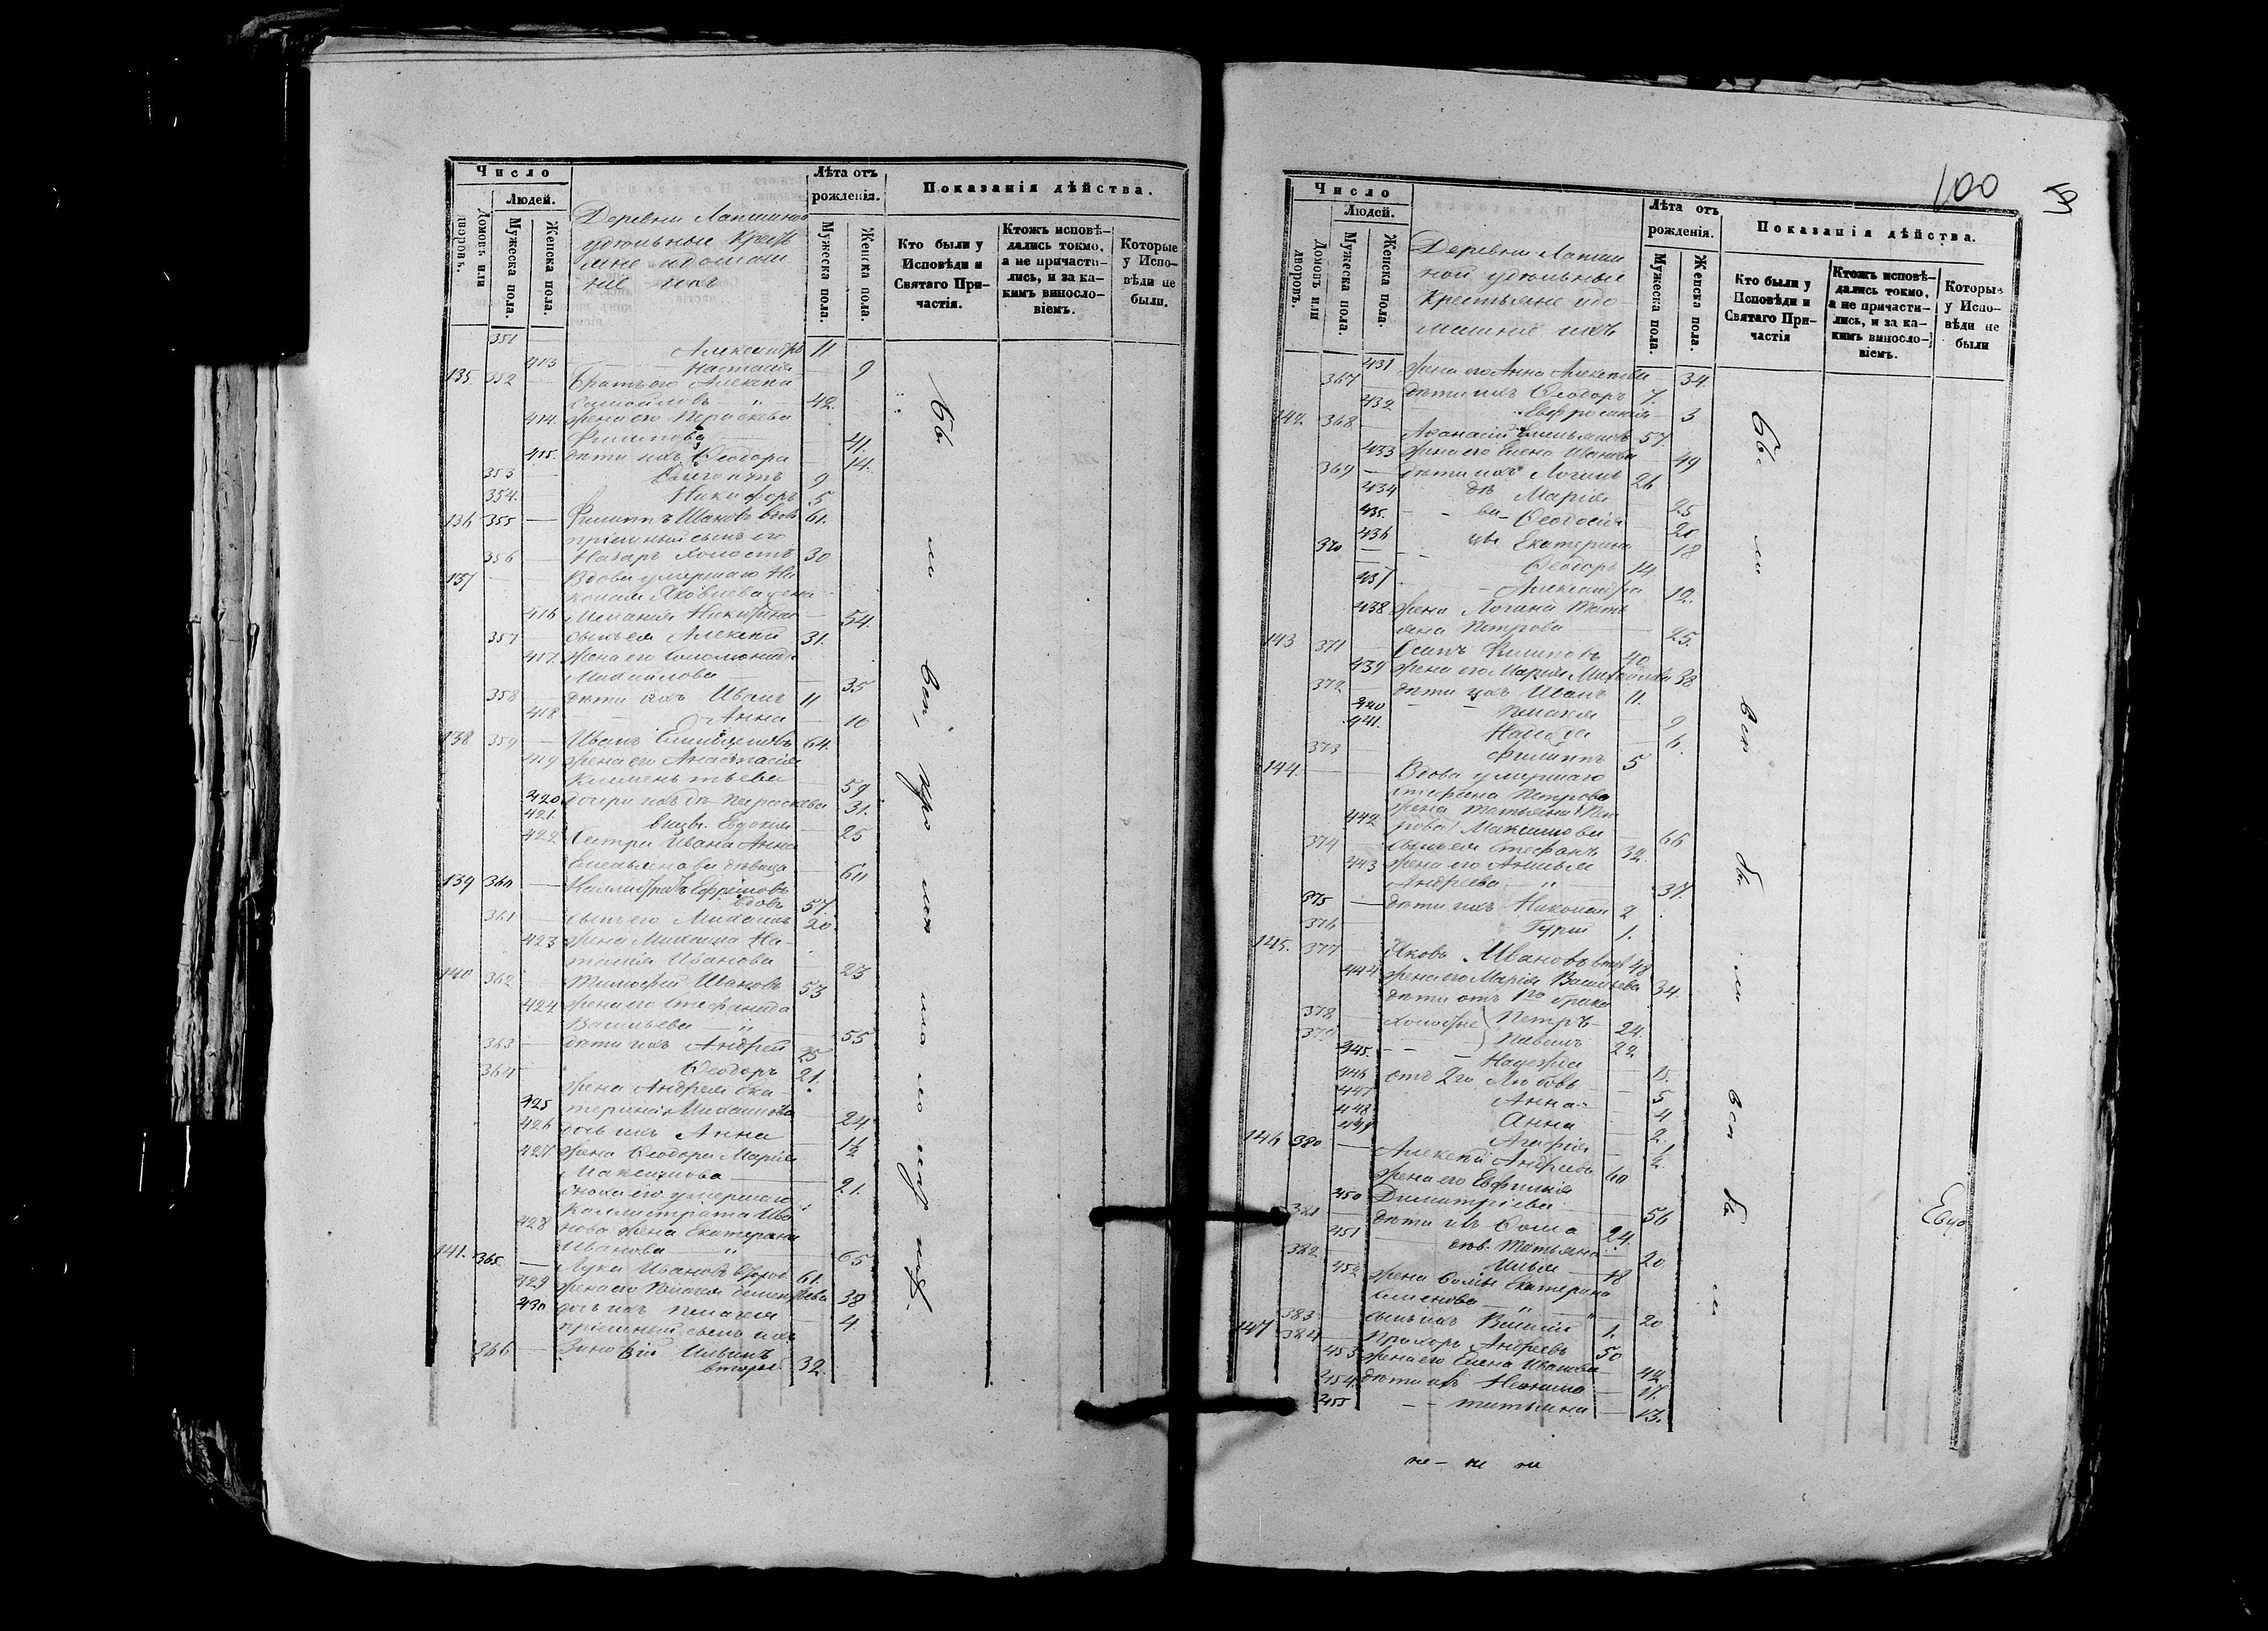 Число
Людей.
Домовъ или дворовъ.
Мужеска пола.
Женска пола.
Деревни Лапшиной
удѣльные Крестья
не и домаш
ніе ихъ
Лѣта отъ рожденія.
Мужеска пола.
Женска пола.
Показанія дѣйства.
Кто были у Исповѣди и Святаго Причастія.
Ктожъ исповѣдались токмо, а не причастились, и за какимъ винословіемъ.
Которые у Исповѣди не были.
351 Александръ 11
413 Настасія 9
135 352 Братъ его Алексѣй
Самойловъ 42.
414. жена его Параскева
Филипова 41.
415. дѣти ихъ Ѳеодора 14.
353 9
354. Никифоръ 5
136 355 Филиппъ Ивановъ вдов 61.
пріемный сынъ его
356 Назаръ холостъ 30
137 Вдова умершаго Ни
колая Яковлева жена
416 Меланія Никитина 54.
357 сынъ ея Алексѣй 31.
417. жена его Соломонида
Михайлова 35
358 дѣти ихъ Иванъ 11
418 Анна 10
138 359 Иванъ Емельяновъ 64.
419 жена его Анастасія
Климентьева 59
420 дочери ихъ дѣ Параскева 31.
421. Евдокія 25
422 Сестра Ивана Анна
Емельянова дѣвица 60
139 360 Каллистратъ Ефремовъ
вдовъ 57.
361 сынъ его Михаилъ 20
423 жена Михаила На
талія Иванова 23
140 362 Тимофей Ивановъ 53
424 жена его Стефанида
Васильева 55
363 дѣти ихъ Андрей 25
364 Ѳеодоръ 21.
жена Андрея Ека
425 терина Михайлова 24
426 дочь ихъ Анна 1½
427 жена Ѳеодора Марія
Максимова 21.
умершаго
Каллистрата Ива
428 нова жена Екатерина
Иванова 65
141. 365. Лука Ивановъ 61.
429 жена его Пелагея 38
430 дочь ихъ Пелагея 4.
пріемный сынъ ихъ
366 Зиновій Ильинъ
вторы 32.
100
Число
Людей.
Домовъ или дворовъ.
Мужеска пола.
Женска пола.
Деревни Лапши
ной удѣльные
Крестьяне и до
машніе ихъ
Лѣта отъ рожденія.
Мужеска пола.
Женска пола.
Показанія дѣйства.
Кто были у Исповѣди и Святаго Причастія
Ктожъ исповѣдались токмо, а не причастились, и за какимъ винословіемъ.
Которые у Исповѣди не были
431 жена его Анна Алексѣева 34.
367 дѣти ихъ Ѳеодоръ 7.
432 Евфросинія 3
142. 368 Аѳанасій Емельяновъ 57.
433 жена его Елена Иванова 49
369 дѣти ихъ Логинъ 26
434 дѣ Марія 25
435. ви Ѳеодосія 20
436 цы Екатерина 18
370 Ѳеодоръ 14
437 Александра 12.
438 жена Логина Тать
яна Петрова 25.
143 371 Осипъ Филиповъ 40
439 жена его Марія Михайлова 38
372 дѣти ихъ Иванъ 11.
440 Пелагея 9
441. 6.
373 Филиппъ 5
144. Вдова умершаго
Стефана Петрова
жена Татьяна (Пет
442 рова) Максимова 66
374 сынъ ея Стефанъ 32.
443 жена его Акилина
Андреева 37.
375 дѣти ихъ Николай 2
376 Гурій 1.
145. 377 Яковъ Ивановъ 48
444 жена его Марія Васильева 34.
дѣти отъ 1го брака
378 холостые Петръ 24.
379 Павелъ 22.
445. Надежда 15.
446 отъ 2го Любовь 5
447 Анна 4
448 Анна 2.
449 Агафія ½
146 380 Алексѣй Андреевъ 60
жена его Евфимія
450 Димитріева 56
381 дѣти ихъ Ѳома 24.
451 дѣв. Татьяна 20
382 Илья 18
452 жена Ѳомы Екатерина
Семенова 20
383 сынъ ихъ 1.
147 384 Прохоръ Андреевъ 50
453 жена его Елена Иванова 42
454. дѣти ихъ Неонила 17.
455 Татьяна 13.